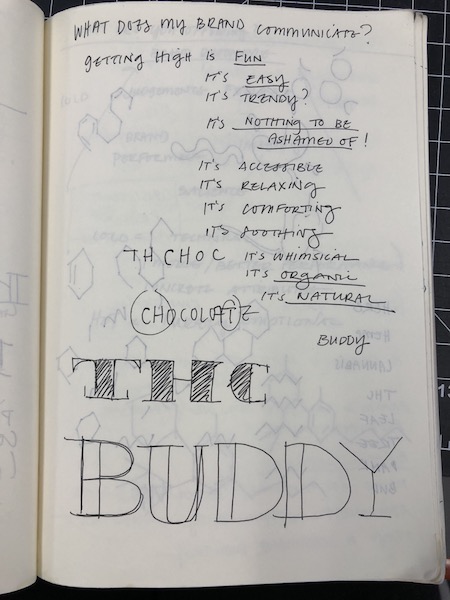 WHAT DOES MY BRAND COMMUNICATE?
GETTING HIGH IS FUN
IT'S EASY
IT'S TRENDY?
IT'S NOTHING TO BE
ASHAMED OF!
IT'S ACCESSIBLE
IT'S RELAXING
IT'S COMFORTING
IT'S SOOTHING
TH CHOC IT'S WHIMSICAL
ITS ORGANIC
IT'S NATURAL
CHOCOLATE
BUDDY
THC
BUDDY
THC
LEAF